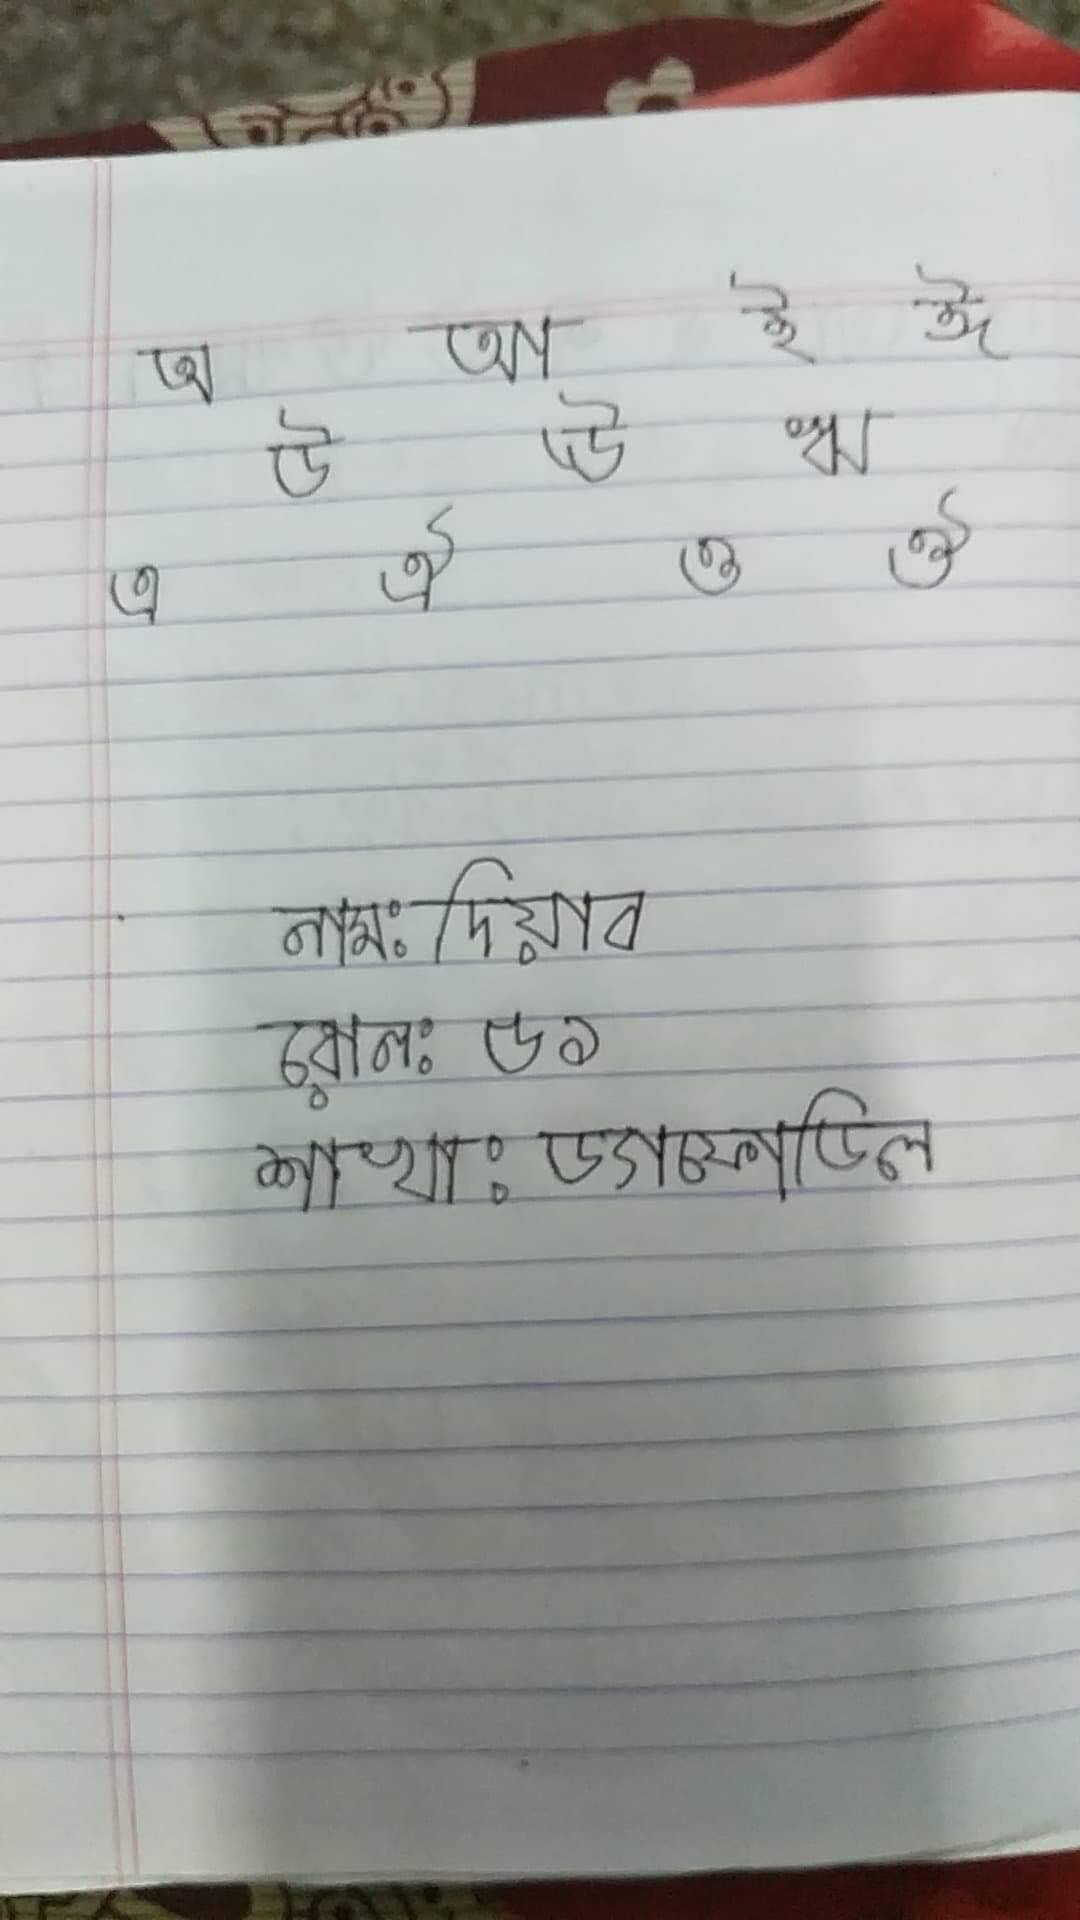 অ আ ই ঈ
উ ঊ ঋ
এ ঐ ও ঔ
নামঃ দিয়াব
রোলঃ ৬১
শাখাঃ ড্যাফোডিল